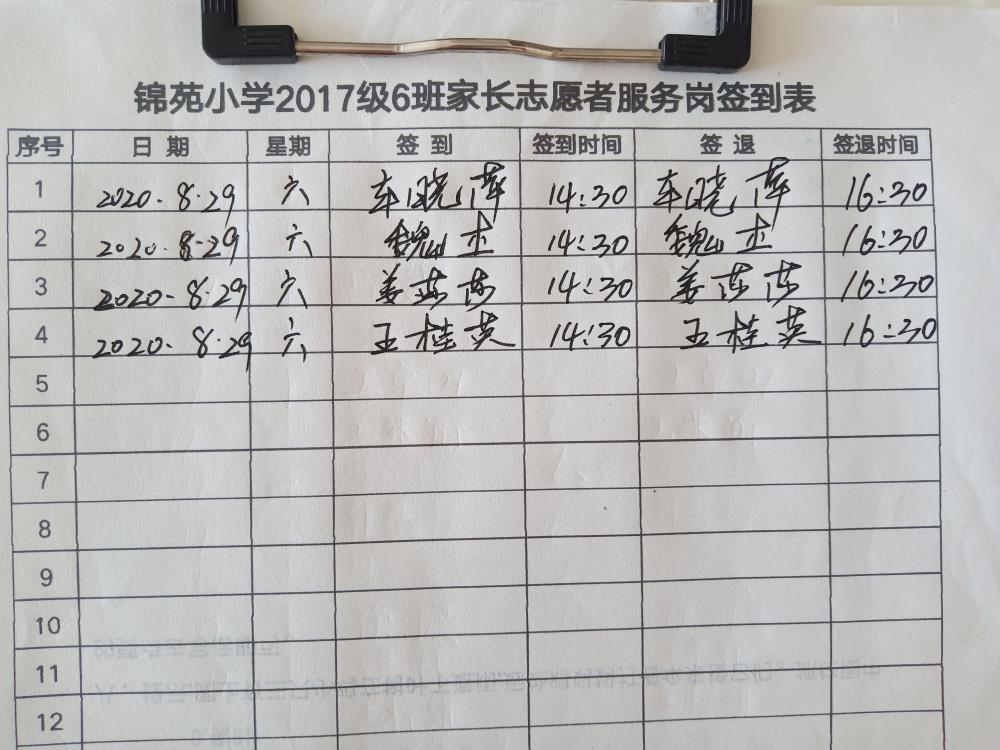 锦苑小学2017级6班家长志愿者服务岗签到表
序号 日期 星期 签到 签到时间 签退 签退时间
1 2020.8.29 六 车晓萍 14:30 车晓萍 16:30
2 2020.8.29 六 魏 14:30 魏 16:30
3 2020.8.29 六 姜 14:30 姜 16:30
4 2020.8.29 六 王桂英 14:30 王桂英 16:30
5
6
7
8
9
10
11
12